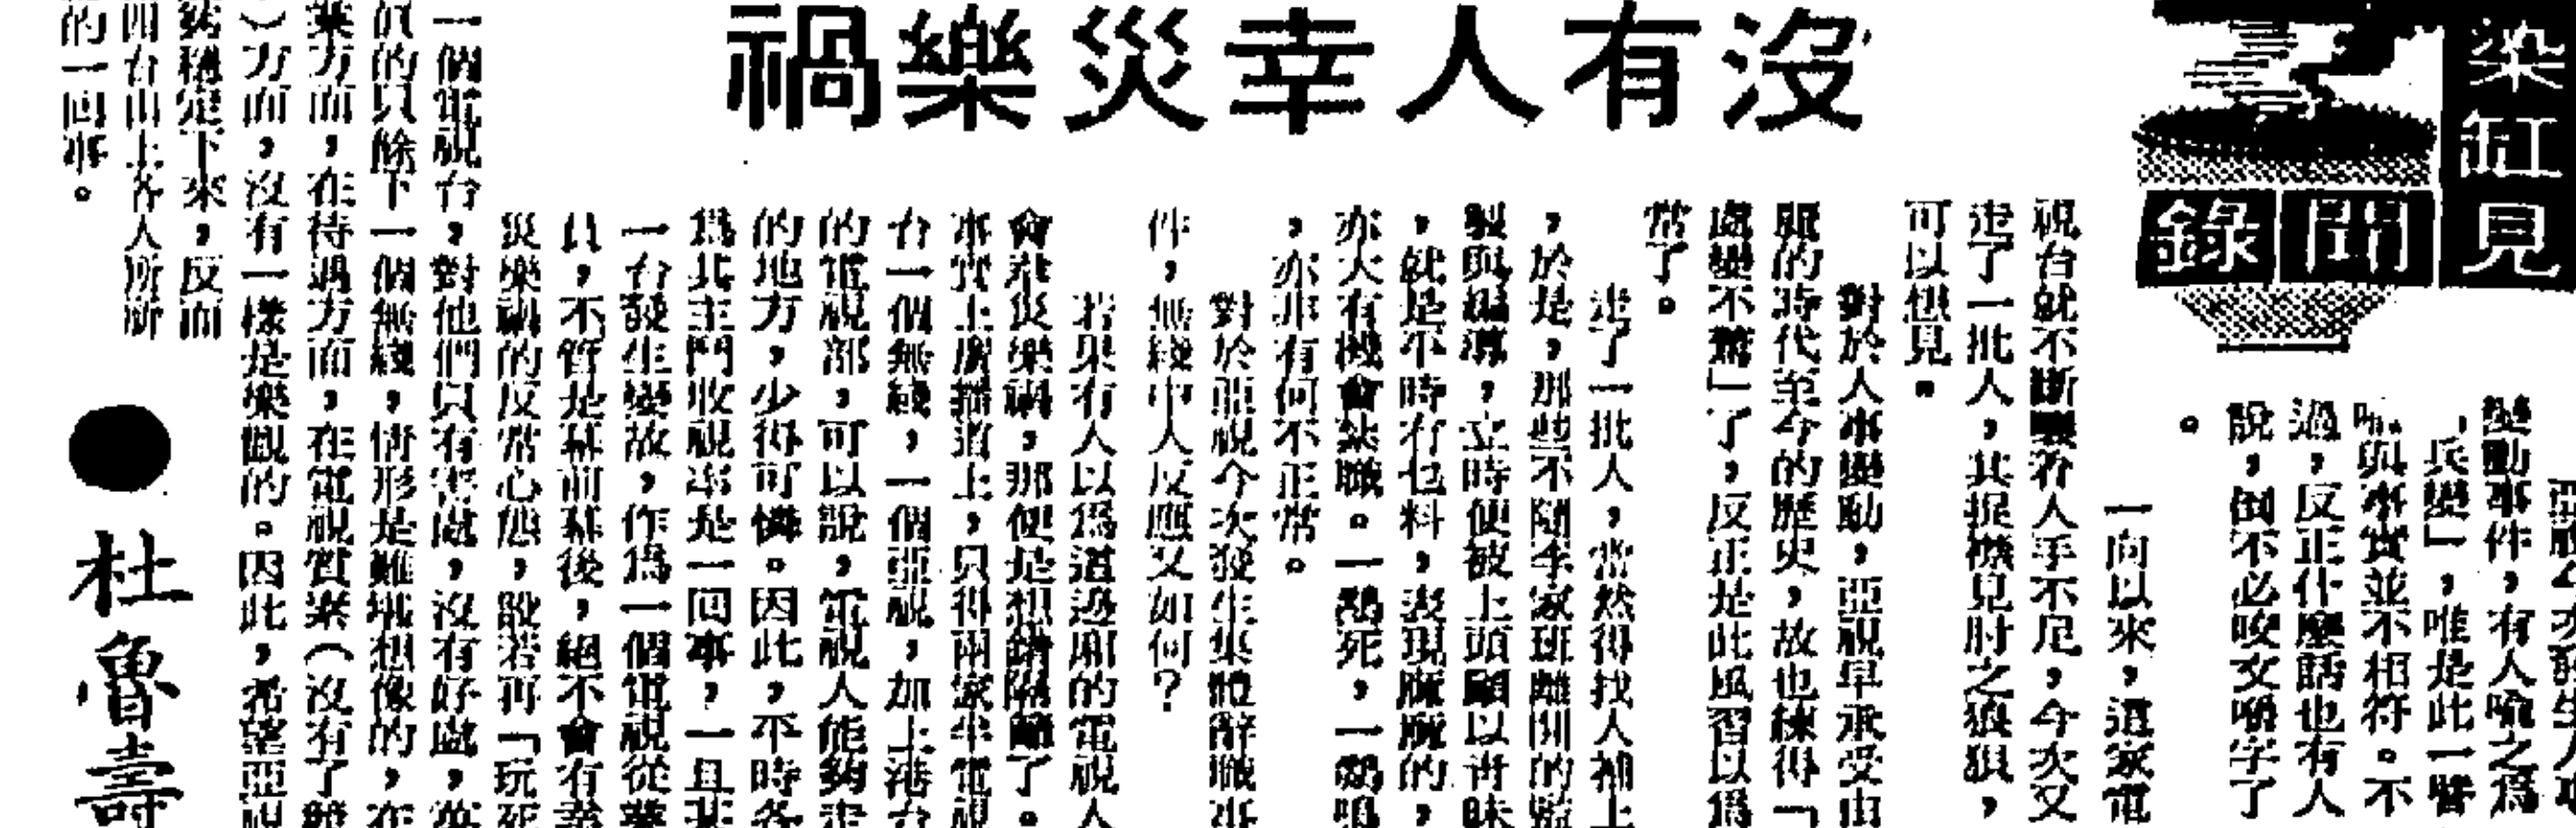 染缸見
聞錄
沒有人幸災樂禍
變動事件，有人喻之為
「兵變」，唯是此一譬
喻與事實並不相符。不
過，反正什麼話也有人
說，倒不必咬文嚼字了
。
一向以來，這家電
視台就不斷嚷着人手不足，今次又
走了一批人，其捉襟見肘之狼狽，
可以想見。
對於人事變動，亞視早承受由
麗的時代至今的歷史，故也練得「
處變不驚」了，反正是此風習以為
常了。
走了一批人，當然得找人補上
，於是，那些不隨李家班離開的監
製與編導，立時便被上頭顧以青睞
，就是不時冇乜料，表現麻麻的，
亦大有機會媾職。一鷄死，一鷄鳴
，亦非有何不正常。
對於亞視今次發生集體辭職事
件，無綫中人反應又如何？
若果有人以為這邊廂的電視人
會幸災樂禍，那便是想錯隔籬了。
事實上廣播道上，只得兩家半電視
台一個無綫，一個亞視，加上港台
的電視部，可以說，電視人能夠走
的地方，少得可憐。因此，平時各
為其主鬥收視率是一回事，一旦某
一台發生變故，作為一個電視從業
員，不管是幕前幕後，絕不會有幸
災樂禍的反常心態，設若再「玩死
一個電視台，對他們只有害處，沒有好處，萬
真的只餘下一個無綫，情形是難堪想像的，在
業方面，在待遇方面，在電視質素（沒有了競
）方面，沒有一樣是樂觀的。因此，希望亞視
夠穩定下來，反而
四台山上各人所祈
的一回事。
●杜魯壽